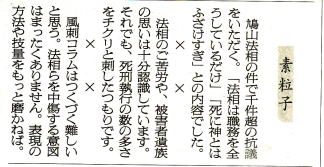 素粒子
鳩山法相の件で千件超の抗議
をいただく。「法相は職務を全
うしているだけ」「死に神とは
ふざけすぎ」との内容でした。
× × ×
法相のご苦労や、被害者遺族
の思いは十分認識しています。
それでも、死刑執行の数の多さ
をチクリと刺したつもりです。
× × ×
風刺コラムはつくづく難しい
と思う。法相らを中傷する意図
はまったくありません。表現の
方法や技量をもっと磨かねば。